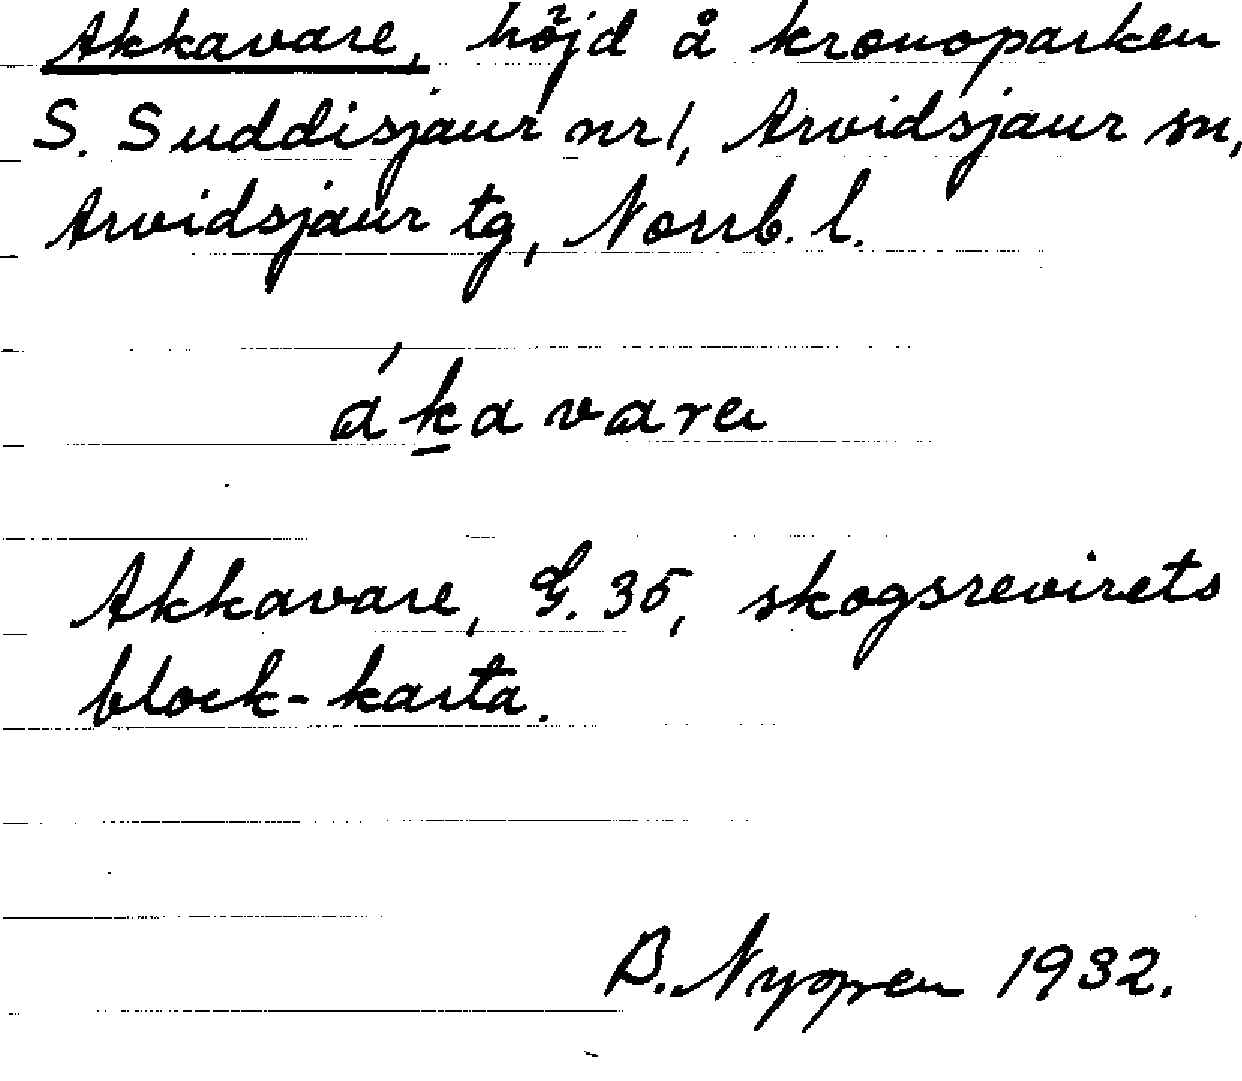 Akkavare, höjd å kronoparken
S. Suddisjaur nr 1, Arvidsjaur sn,
Arvidsjaur tg, Norrb. l.
ákavarɛ
Akkavare, G. 35, skogsrevirets
block-karta.
B. Nyppen 1932.